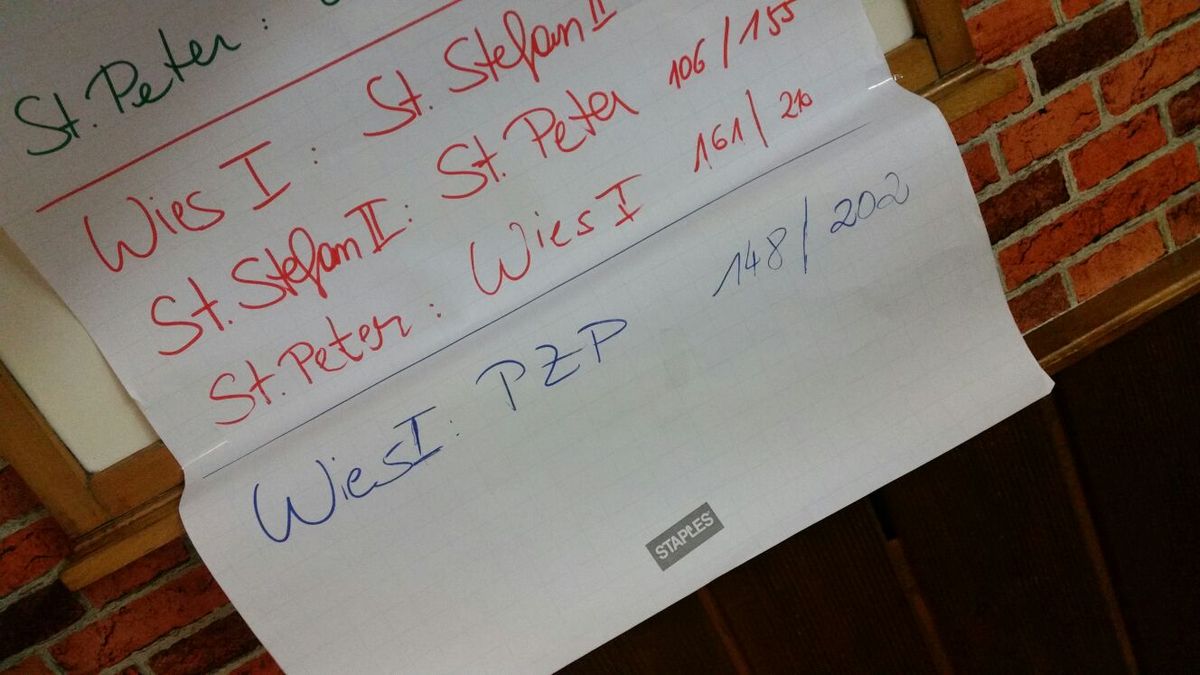 St. Peter:
Wies I : St. Stefan II
St. Stefan II: St. Peter 106/155
St. Peter: Wies I 161/210
Wies I: PZP 148/202
STAPLES